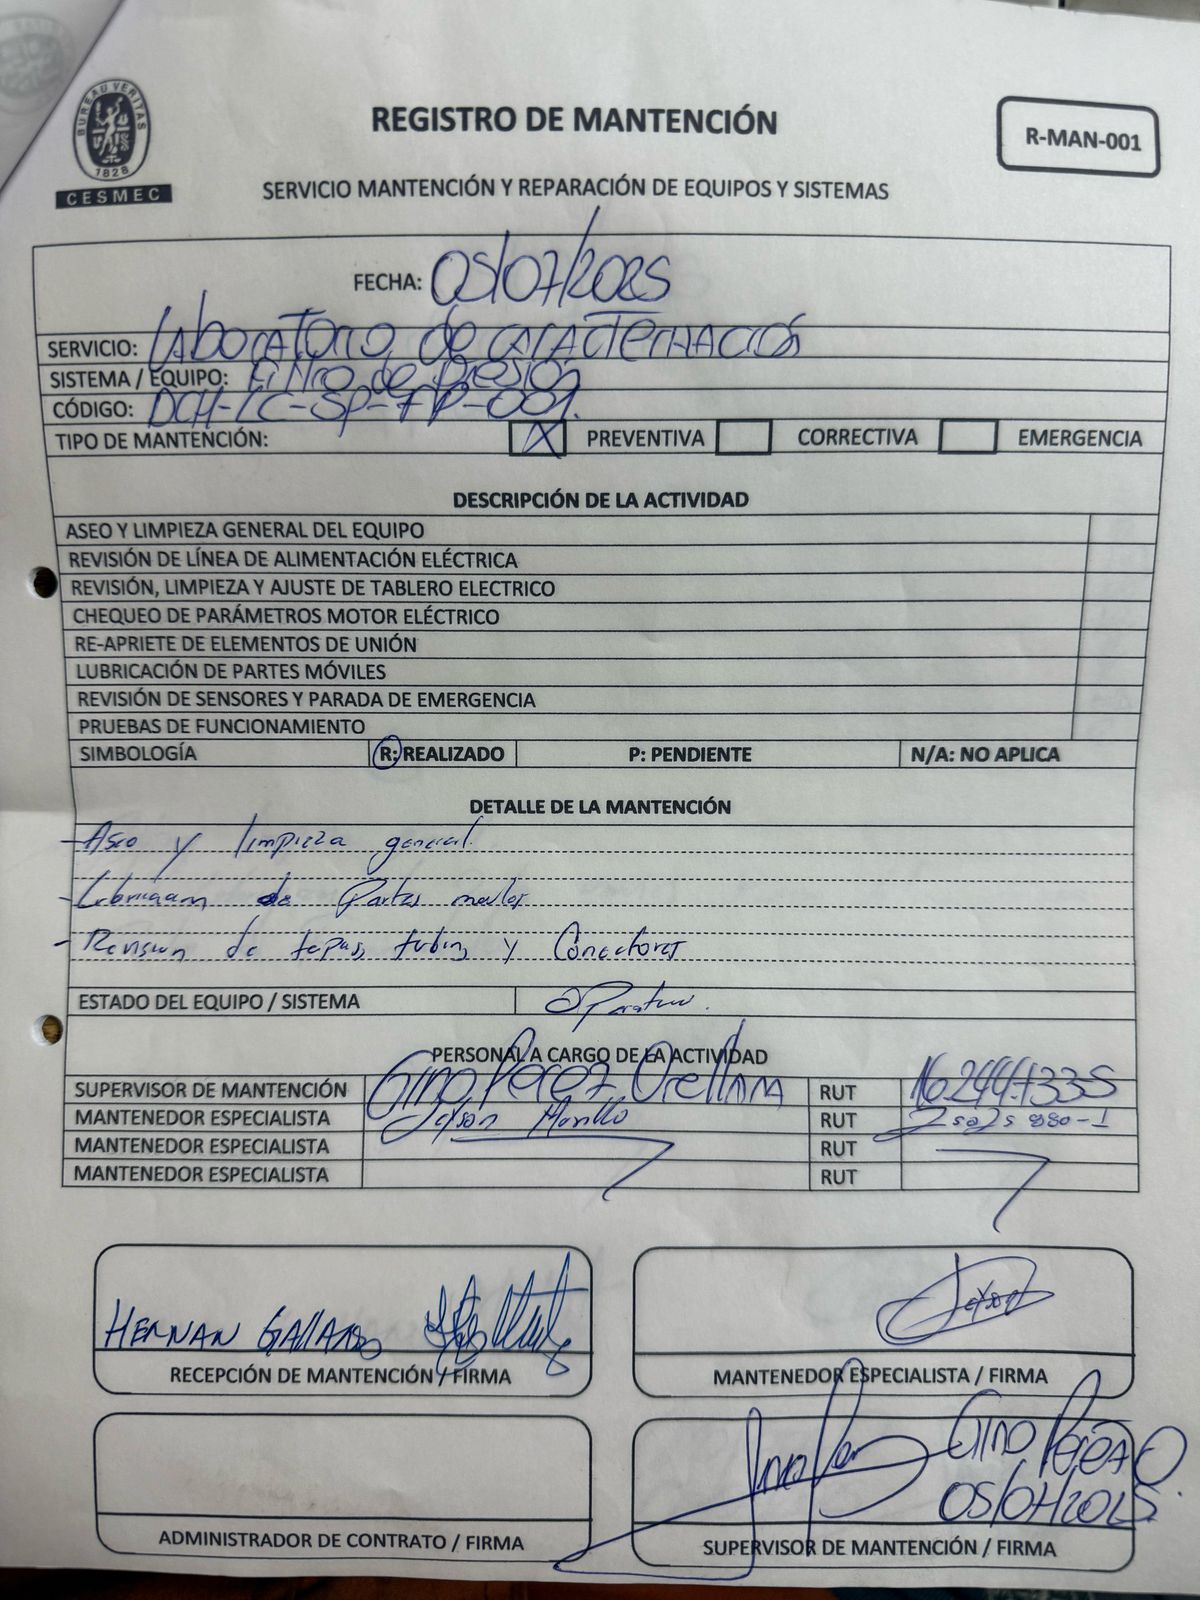 BUREAU VERITAS
1828
CESMEC
REGISTRO DE MANTENCIÓN
R-MAN-001
SERVICIO MANTENCIÓN Y REPARACIÓN DE EQUIPOS Y SISTEMAS
FECHA: 05/07/2025
SERVICIO: Laboratorio de caracterización
SISTEMA / EQUIPO: Filtro de Presión
CÓDIGO: DCH-LC-SP-FP-001.
TIPO DE MANTENCIÓN: X PREVENTIVA CORRECTIVA EMERGENCIA
DESCRIPCIÓN DE LA ACTIVIDAD
ASEO Y LIMPIEZA GENERAL DEL EQUIPO
REVISIÓN DE LÍNEA DE ALIMENTACIÓN ELÉCTRICA
REVISIÓN, LIMPIEZA Y AJUSTE DE TABLERO ELECTRICO
CHEQUEO DE PARÁMETROS MOTOR ELÉCTRICO
RE-APRIETE DE ELEMENTOS DE UNIÓN
LUBRICACIÓN DE PARTES MÓVILES
REVISIÓN DE SENSORES Y PARADA DE EMERGENCIA
PRUEBAS DE FUNCIONAMIENTO
SIMBOLOGÍA R: REALIZADO P: PENDIENTE N/A: NO APLICA
DETALLE DE LA MANTENCIÓN
- Aseo y limpieza general.
- Lubricacion de Partes moviles
- Revision de tapas, tubin, y Conectores
ESTADO DEL EQUIPO / SISTEMA Operativo.
PERSONAL A CARGO DE LA ACTIVIDAD
SUPERVISOR DE MANTENCIÓN Gino Perez Orellana RUT 16.244.733-5
MANTENEDOR ESPECIALISTA Jeyson Morillo RUT 25025880-1
MANTENEDOR ESPECIALISTA RUT
MANTENEDOR ESPECIALISTA RUT
HERNAN GALLARDO
RECEPCIÓN DE MANTENCIÓN / FIRMA
Jeyson
MANTENEDOR ESPECIALISTA / FIRMA
Gino Perez O
05/07/2025.
ADMINISTRADOR DE CONTRATO / FIRMA
SUPERVISOR DE MANTENCIÓN / FIRMA